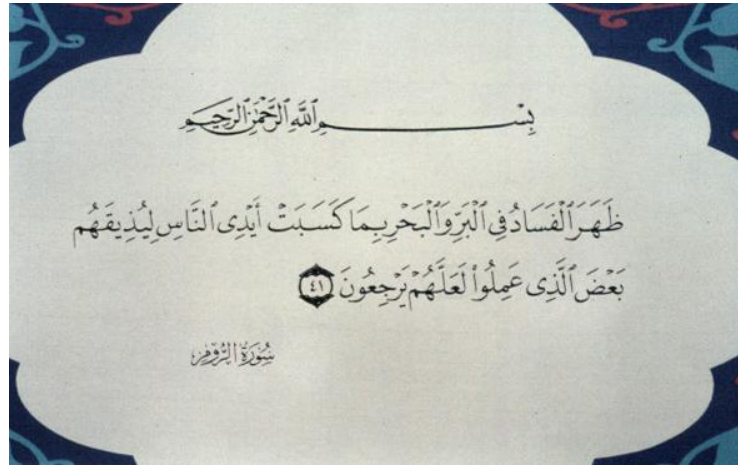 بِسْمِ ٱللَّهِ ٱلرَّحْمَٰنِ ٱلرَّحِيمِ
ظَهَرَ ٱلْفَسَادُ فِي ٱلْبَرِّ وَٱلْبَحْرِ بِمَا كَسَبَتْ أَيْدِى ٱلنَّاسِ لِيُذِيقَهُم
بَعْضَ ٱلَّذِى عَمِلُوا۟ لَعَلَّهُمْ يَرْجِعُونَ ٤١
سُورَةُ الرُّومِ